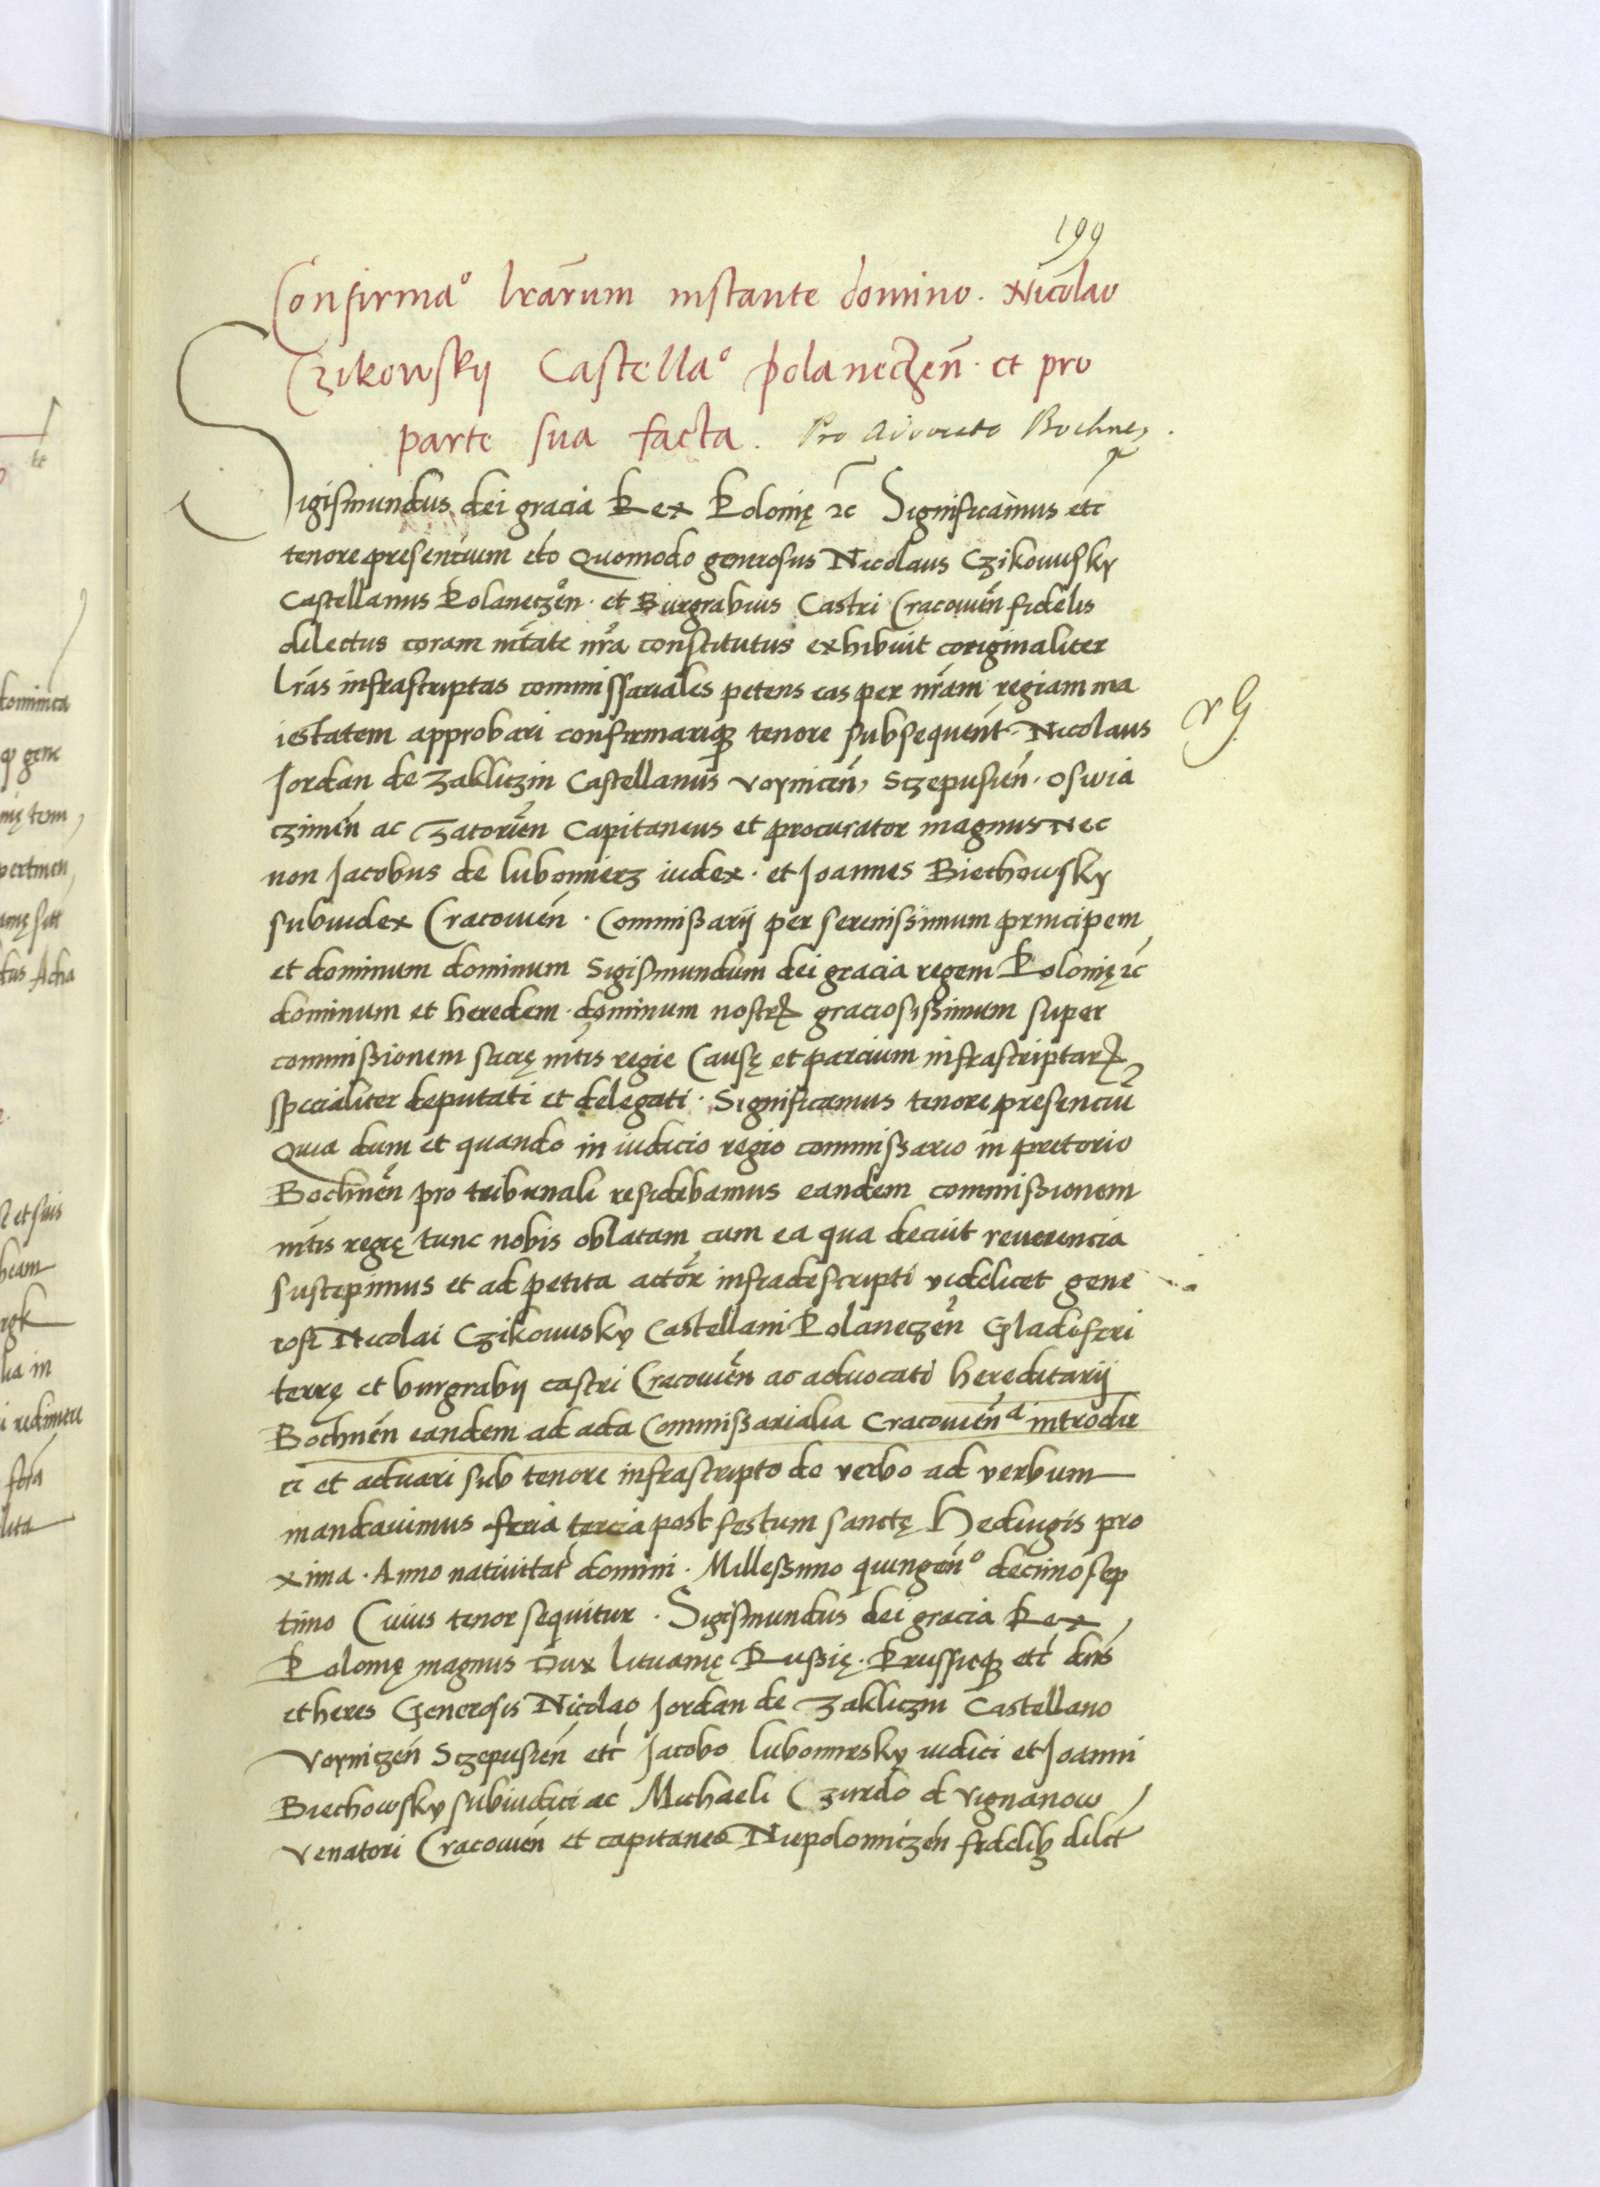 199
Confirmaº lrãrum instante domino. Nicolao
Czikowskij Castellaº Polaneczeñ. et pro
parte sua facta. Pro advocato Bochneñ.
Sigismundus dei gracia Rex Polonię ꝛc Significamus etc̃
tenore presencium etc Quomodo generosus Nicolaus Czikowsky
Castellanus Polaneczeñ. et Burgrabius Castri Cracouieñ fidelis
dilectus coram mt̃ate nr̃a constitutus exhibuit coriginaliter
lrãs infrascriptas commissariales petens eas per nrãm regiam ma
iestatem approbari confirmariqꝫ tenore subsequenti. Nicolaus
Jordan de Zakliczin Castellanus voyniceñ, Sczepusieñ. Oswia
czimeñ ac Zatorieñ Capitaneus et procurator magnus Nec
non Jacobus de lubomierz iudex. et Joannes Biechowsky
subiudex Cracouieñ. Commissarij per serenissimum principem
et dominum dominum Sigismundum dei gracia regem Polonię ꝛc̃
dominum et heredem. dominum nostrꝝ graciosissimum super
commissionem sacrę mt̃is regie Causę et parcium infrascriptarꝝ
specialiter deputati et delegati. Significamus tenore presenciũ
Quia dum et quando in iudicio regio commissario in pretorio
Bochneñ pro tribunali residebamus eandem commissionem
mt̃is regię tunc nobis oblatam cum ea qua decuit reuerencia
suscepimus et ad petita actor̃ infradescripti videlicet gene
rosi Nicolai Czikowusky Castellani Polaneczeñ Gladiferi
terrę et burgrabij castri Cracouieñ ac aduocati hereditarij
Bochneñ eandem ad acta Commissarialia Cracouieñ introdu
ci et actuari sub tenore infrascripto de verbo ad verbum
mandauimus feria tercia post festum sanctę Hedwigis pro
xima. Anno natiuitat̃ domini. Millessimo quingeñº decimosep
timo Cuius tenor sequitur. Sigismundus dei gracia Rex
Polonię magnus Dux lituanię Russię. Prussieqꝫ etc̃ dñs
et heres Generosis Nicolao Jordan de Zakliczin Castellano
Voyniczeñ Sczepusieñ etc̃ Jacobo lubomirsky iudici et Joanni
Biechowsky subiudici ac Michaeli Czurilo d vignanow
venatori Cracouieñ et capitaneo Niepolomiczeñ fidelibꝫ dilct̃